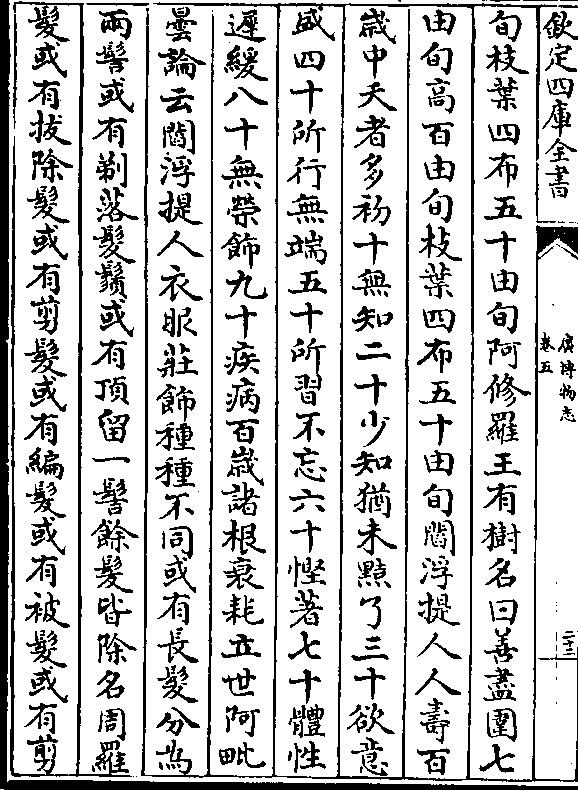 欽定四庫全書
廣博物志
卷五
二十二
旬枝葉四布五十由旬阿修羅王有樹名曰善盡圍七
由旬高百由旬枝葉四布五十由旬閻浮提人人壽百
歲中夭者多初十無知二十少知猶未黠了三十欲意
盛四十所行無端五十所習不忘六十慳著七十體性
遲緩八十無榮飾九十疾病百歲諸根衰耗立世阿毗
曇論云閻浮提人衣服莊飾種種不同或有長髮分為
兩髻或有剃落髮鬚或有頂留一髻餘髮皆除名周羅
髮或有拔除髮或有剪髮或有編髮或有被髮或有剪